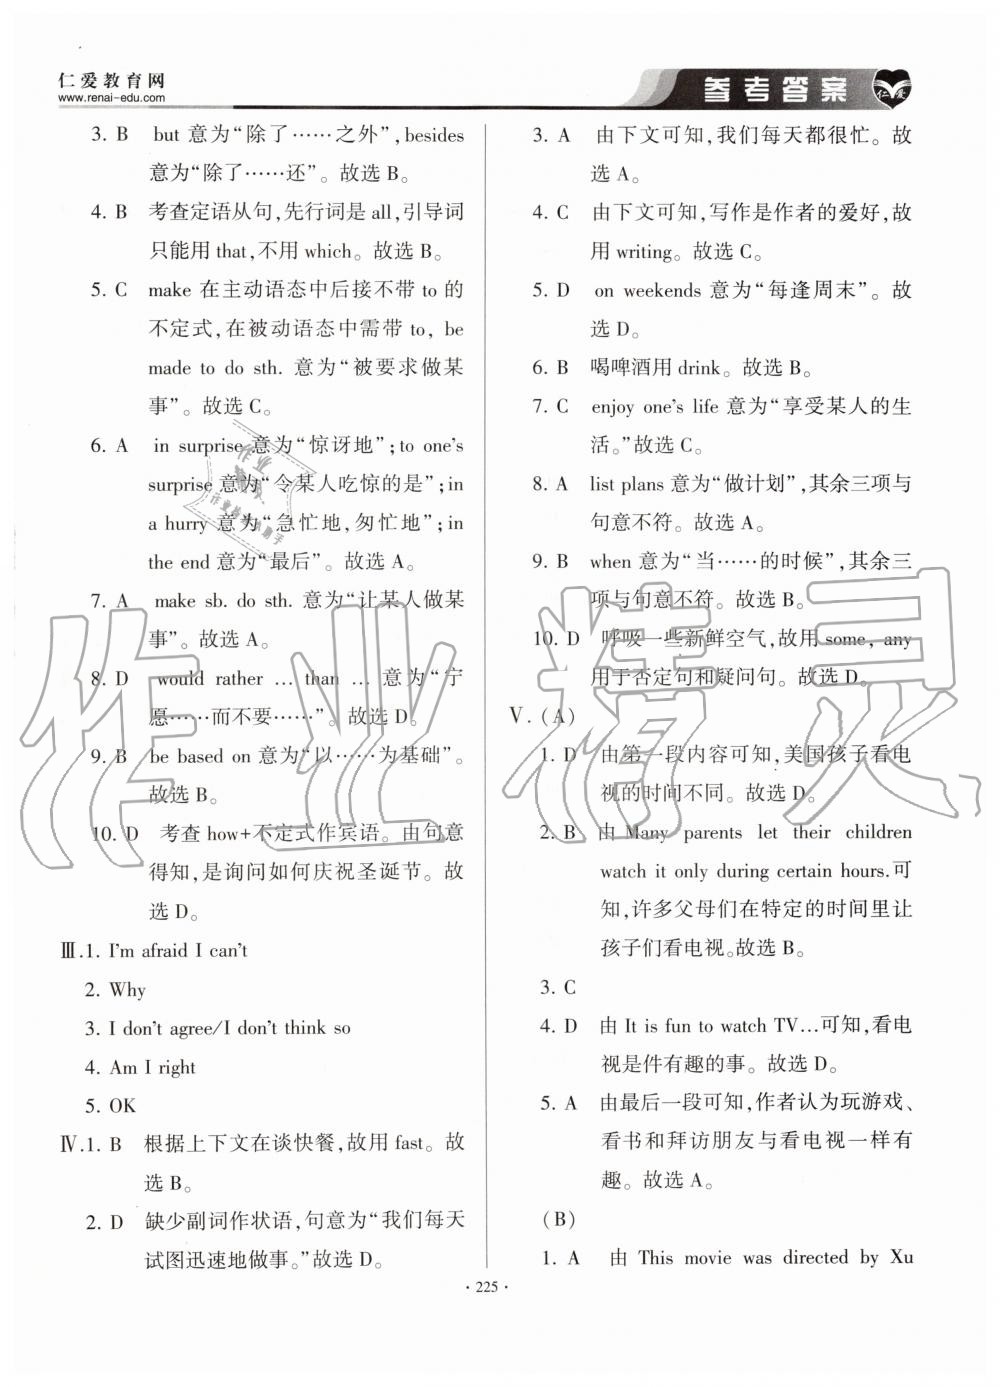 仁爱教育网
www.renai-edu.com
参考答案
仁爱
3. B but 意为“除了……之外”,besides
意为“除了……还”。故选 B。
4. B 考查定语从句,先行词是 all,引导词
只能用 that,不用 which。故选 B。
5. C make 在主动语态中后接不带 to 的
不定式,在被动语态中需带 to, be
made to do sth. 意为“被要求做某
事”。故选 C。
6. A in surprise 意为“惊讶地”;to one's
surprise 意为“令某人吃惊的是”;in
a hurry 意为“急忙地,匆忙地”;in
the end 意为“最后”。故选 A。
7. A make sb. do sth. 意为“让某人做某
事”。故选 A。
8. D would rather … than … 意为“宁
愿……而不要……”。故选 D。
9. B be based on 意为“以……为基础”。
故选 B。
10. D 考查 how+不定式作宾语。由句意
得知,是询问如何庆祝圣诞节。故
选 D。
Ⅲ.1. I'm afraid I can't
2. Why
3. I don't agree/I don't think so
4. Am I right
5. OK
Ⅳ.1. B 根据上下文在谈快餐,故用 fast。故
选 B。
2. D 缺少副词作状语,句意为“我们每天
试图迅速地做事。”故选 D。
3. A 由下文可知,我们每天都很忙。故
选 A。
4. C 由下文可知,写作是作者的爱好,故
用 writing。故选 C。
5. D on weekends 意为“每逢周末”。故
选 D。
6. B 喝啤酒用 drink。故选 B。
7. C enjoy one's life 意为“享受某人的生
活。”故选 C。
8. A list plans 意为“做计划”,其余三项与
句意不符。故选 A。
9. B when 意为“当……的时候”,其余三
项与句意不符。故选 B。
10. D 呼吸一些新鲜空气,故用 some, any
用于否定句和疑问句。故选 D。
Ⅴ. (A)
1. D 由第一段内容可知,美国孩子看电
视的时间不同。故选 D。
2. B 由 Many parents let their children
watch it only during certain hours.可
知,许多父母们在特定的时间里让
孩子们看电视。故选 B。
3. C
4. D 由 It is fun to watch TV…可知,看电
视是件有趣的事。故选 D。
5. A 由最后一段可知,作者认为玩游戏、
看书和拜访朋友与看电视一样有
趣。故选 A。
(B)
1. A 由 This movie was directed by Xu
· 225 ·
作业精灵